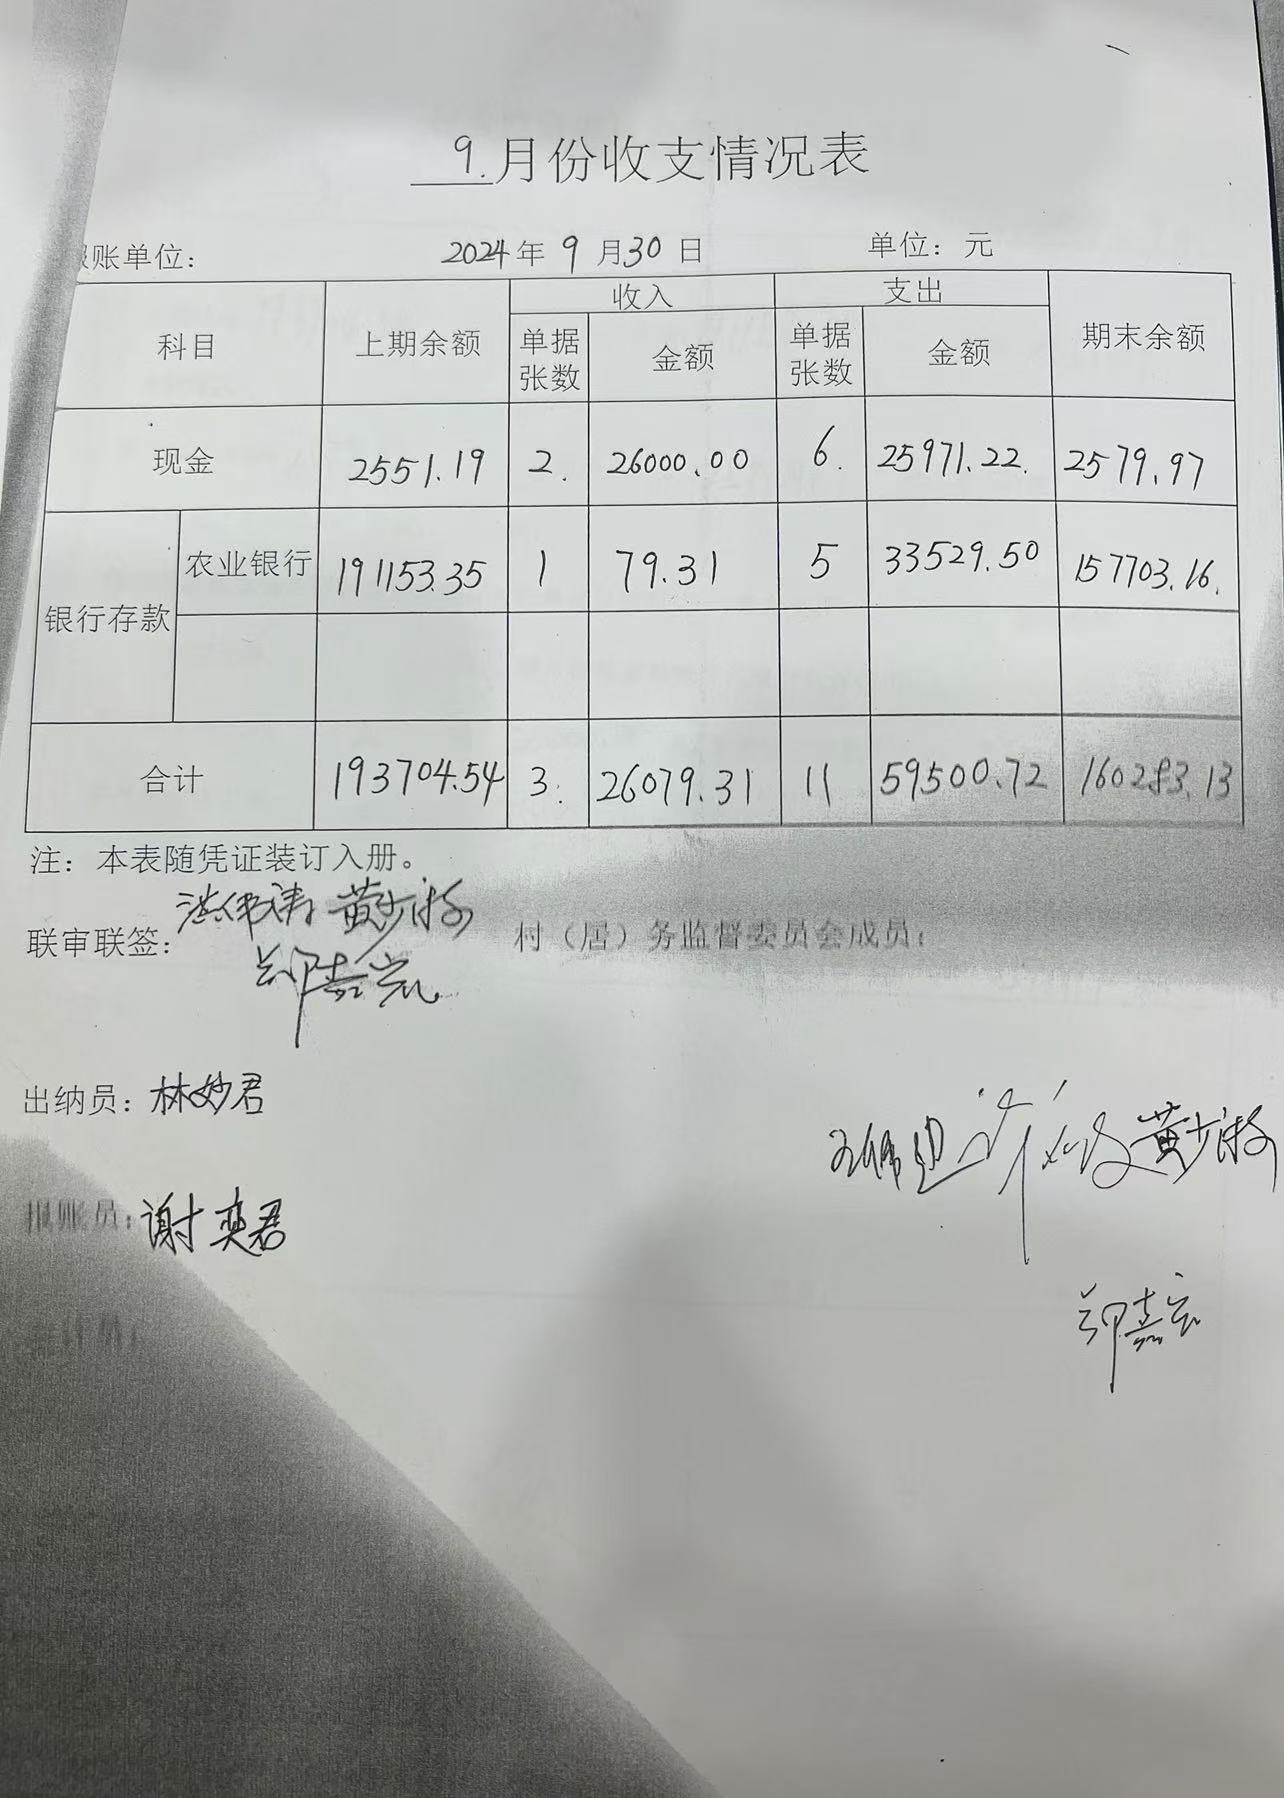 9.月份收支情况表
账单位： 2024年9月30日 单位：元
科目 上期余额 收入 支出 期末余额
单据张数 金额 单据张数 金额
现金 2551.19 2. 26000.00 6. 25971.22. 2579.97
银行存款 农业银行 191153.35 1 79.31 5 33529.50 157703.16.
合计 193704.54 3. 26079.31 11 59500.72 160283.13
注：本表随凭证装订入册。
联审联签： 村（居）务监督委员会成员：
郑嘉宏
出纳员：林妙君
报账员：谢奕君
郑嘉宏